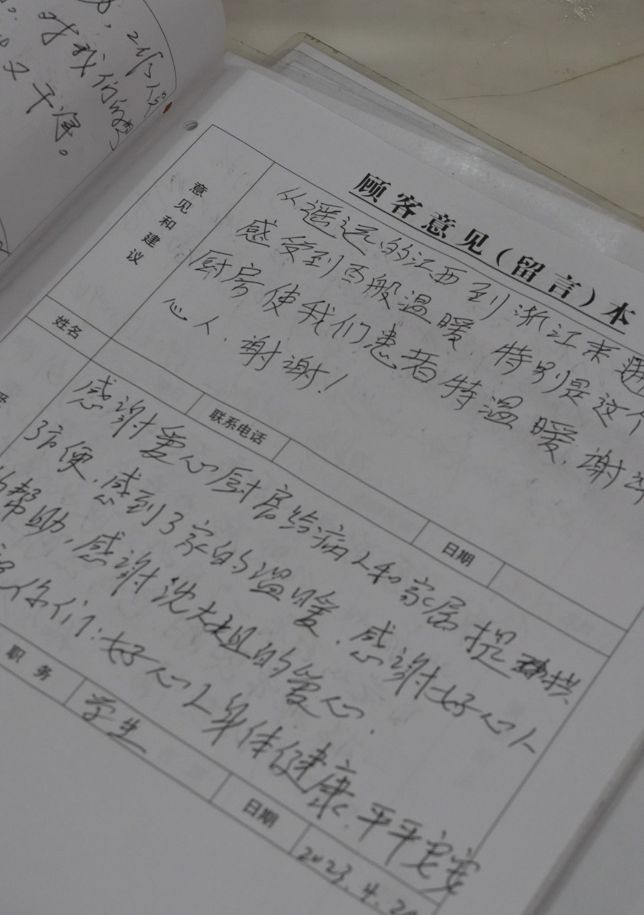 对我们的
又干净。
顾客意见(留言)本
意见和建议
从遥远的江西到浙江来
感受到百般温暖,特别是这个
厨房使我们患者特温暖,谢
心人,谢谢!
姓名
联系电话
日期
感谢爱心厨房给病人和家属提
方便,感到了家的温暖,感谢好心人
帮助,感谢沈大姐的爱心.
你们:好心人身体健康,平平安安
职务
学生
日期
2023.4.20